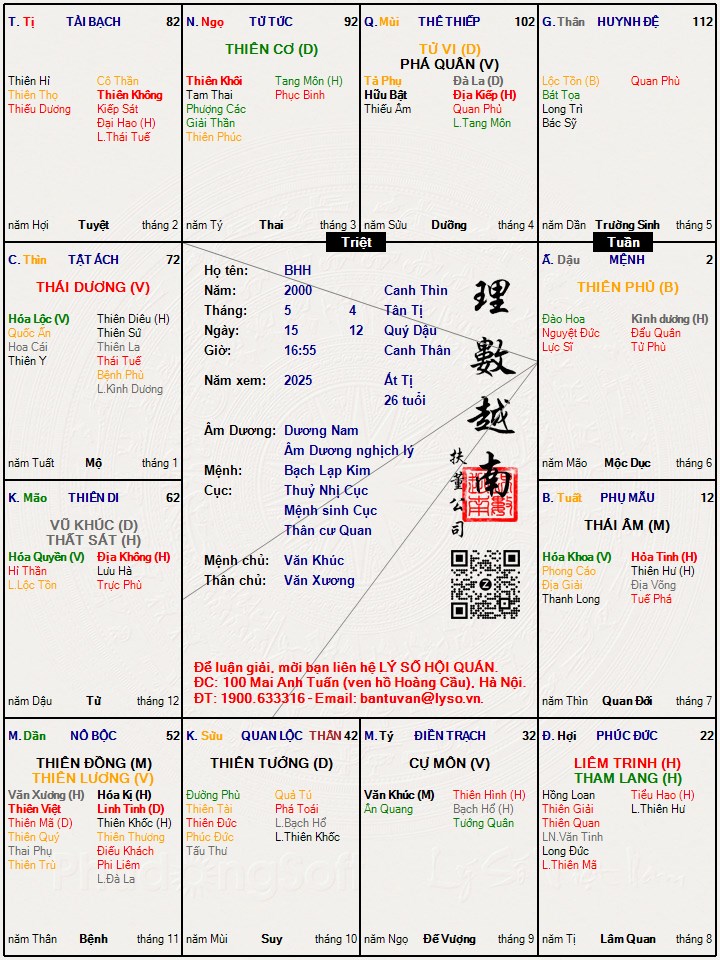 T. Tị TÀI BẠCH 82
Thiên Hỉ
Thiên Thọ
Thiếu Dương
Cô Thần
Thiên Không
Kiếp Sát
Đại Hao (H)
L.Thái Tuế
năm Hợi Tuyệt tháng 2
N. Ngọ TỬ TỨC 92
THIÊN CƠ (D)
Thiên Khôi
Tam Thai
Phượng Các
Giải Thần
Thiên Phúc
Tang Môn (H)
Phục Binh
năm Tý Thai tháng 3
Q. Mùi THÊ THIẾP 102
TỬ VI (D)
PHÁ QUÂN (V)
Tả Phụ
Hữu Bật
Thiếu Âm
Đà La (D)
Địa Kiếp (H)
Quan Phủ
L.Tang Môn
năm Sửu Dưỡng tháng 4
G. Thân HUYNH ĐỆ 112
Lộc Tồn (B)
Bát Tọa
Long Trì
Bác Sỹ
Quan Phù
năm Dần Trường Sinh tháng 5
Triệt
Tuần
C. Thìn TẬT ÁCH 72
THÁI DƯƠNG (V)
Hóa Lộc (V)
Quốc Ấn
Hoa Cái
Thiên Y
Thiên Diêu (H)
Thiên Sứ
Thiên La
Thái Tuế
Bệnh Phù
L.Kình Dương
năm Tuất Mộ tháng 1
Họ tên: BHH
Năm: 2000 Canh Thìn
Tháng: 5 4 Tân Tị
Ngày: 15 12 Quý Dậu
Giờ: 16:55 Canh Thân
Năm xem: 2025 Ất Tị
26 tuổi
Âm Dương: Dương Nam
Âm Dương nghịch lý
Mệnh: Bạch Lạp Kim
Cục: Thuỷ Nhị Cục
Mệnh sinh Cục
Thân cư Quan
Mệnh chủ: Văn Khúc
Thân chủ: Văn Xương
理數越南
扶董公司
Để luận giải, mời bạn liên hệ LÝ SỐ HỘI QUÁN.
ĐC: 100 Mai Anh Tuấn (ven hồ Hoàng Cầu), Hà Nội.
ĐT: 1900.633316 - Email: bantuvan@lyso.vn.
Ấ. Dậu MỆNH 2
THIÊN PHỦ (B)
Đào Hoa
Nguyệt Đức
Lực Sĩ
Kình dương (H)
Đẩu Quân
Tử Phù
năm Mão Mộc Dục tháng 6
K. Mão THIÊN DI 62
VŨ KHÚC (D)
THẤT SÁT (H)
Hóa Quyền (V)
Hỉ Thần
L.Lộc Tồn
Địa Không (H)
Lưu Hà
Trực Phù
năm Dậu Tử tháng 12
B. Tuất PHỤ MẪU 12
THÁI ÂM (M)
Hóa Khoa (V)
Phong Cáo
Địa Giải
Thanh Long
Hỏa Tinh (H)
Thiên Hư (H)
Địa Võng
Tuế Phá
năm Thìn Quan Đới tháng 7
M. Dần NÔ BỘC 52
THIÊN ĐỒNG (M)
THIÊN LƯƠNG (V)
Văn Xương (H)
Thiên Việt
Thiên Mã (D)
Thiên Quý
Thai Phụ
Thiên Trù
Hóa Kị (H)
Linh Tinh (D)
Thiên Khốc (H)
Thiên Thương
Điếu Khách
Phi Liêm
L.Đà La
năm Thân Bệnh tháng 11
K. Sửu QUAN LỘC THÂN 42
THIÊN TƯỚNG (D)
Đường Phù
Thiên Tài
Thiên Đức
Phúc Đức
Tấu Thư
Quả Tú
Phá Toái
L.Bạch Hổ
L.Thiên Khốc
năm Mùi Suy tháng 10
M. Tý ĐIỀN TRẠCH 32
CỰ MÔN (V)
Văn Khúc (M)
Ân Quang
Thiên Hình (H)
Bạch Hổ (H)
Tướng Quân
năm Ngọ Đế Vượng tháng 9
Đ. Hợi PHÚC ĐỨC 22
LIÊM TRINH (H)
THAM LANG (H)
Hồng Loan
Thiên Giải
Thiên Quan
LN.Văn Tinh
Long Đức
L.Thiên Mã
Tiểu Hao (H)
L.Thiên Hư
năm Tị Lâm Quan tháng 8